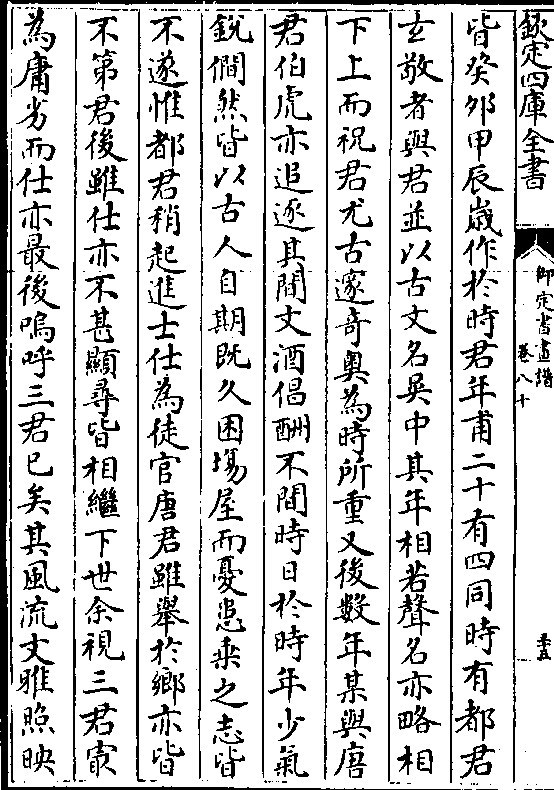 欽定四庫全書
御定書畫譜
卷八十
皆癸夘甲辰嵗作於時君年甫二十有四同時有都君
𤣥敬者與君並以古文名吳中其年相若聲名亦略相
下上而祝君尤古邃奇奥為時所重又後數年某與唐
君伯虎亦追逐其間文酒倡酬不間時日於時年少氣
銳僩然皆以古人自期既久困塲屋而憂患乘之志皆
不遂惟都君稍起進士仕為徒官唐君雖舉於鄉亦皆
不第君後雖仕亦不甚顯尋皆相繼下世余視三君㝡
為庸劣而仕亦最後嗚呼三君已矣其風流文雅照映